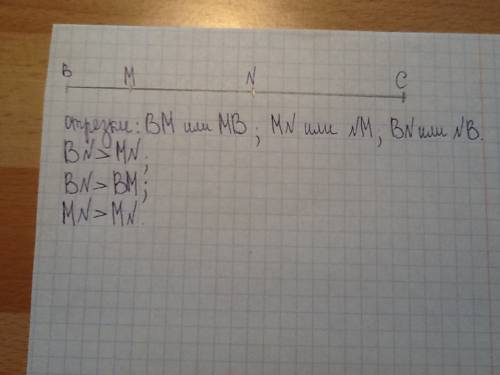 B M N C
отрезки: BM или MB; MN или NM; BN или NB.
BN>MN;
BN>BM;
MN>MN.